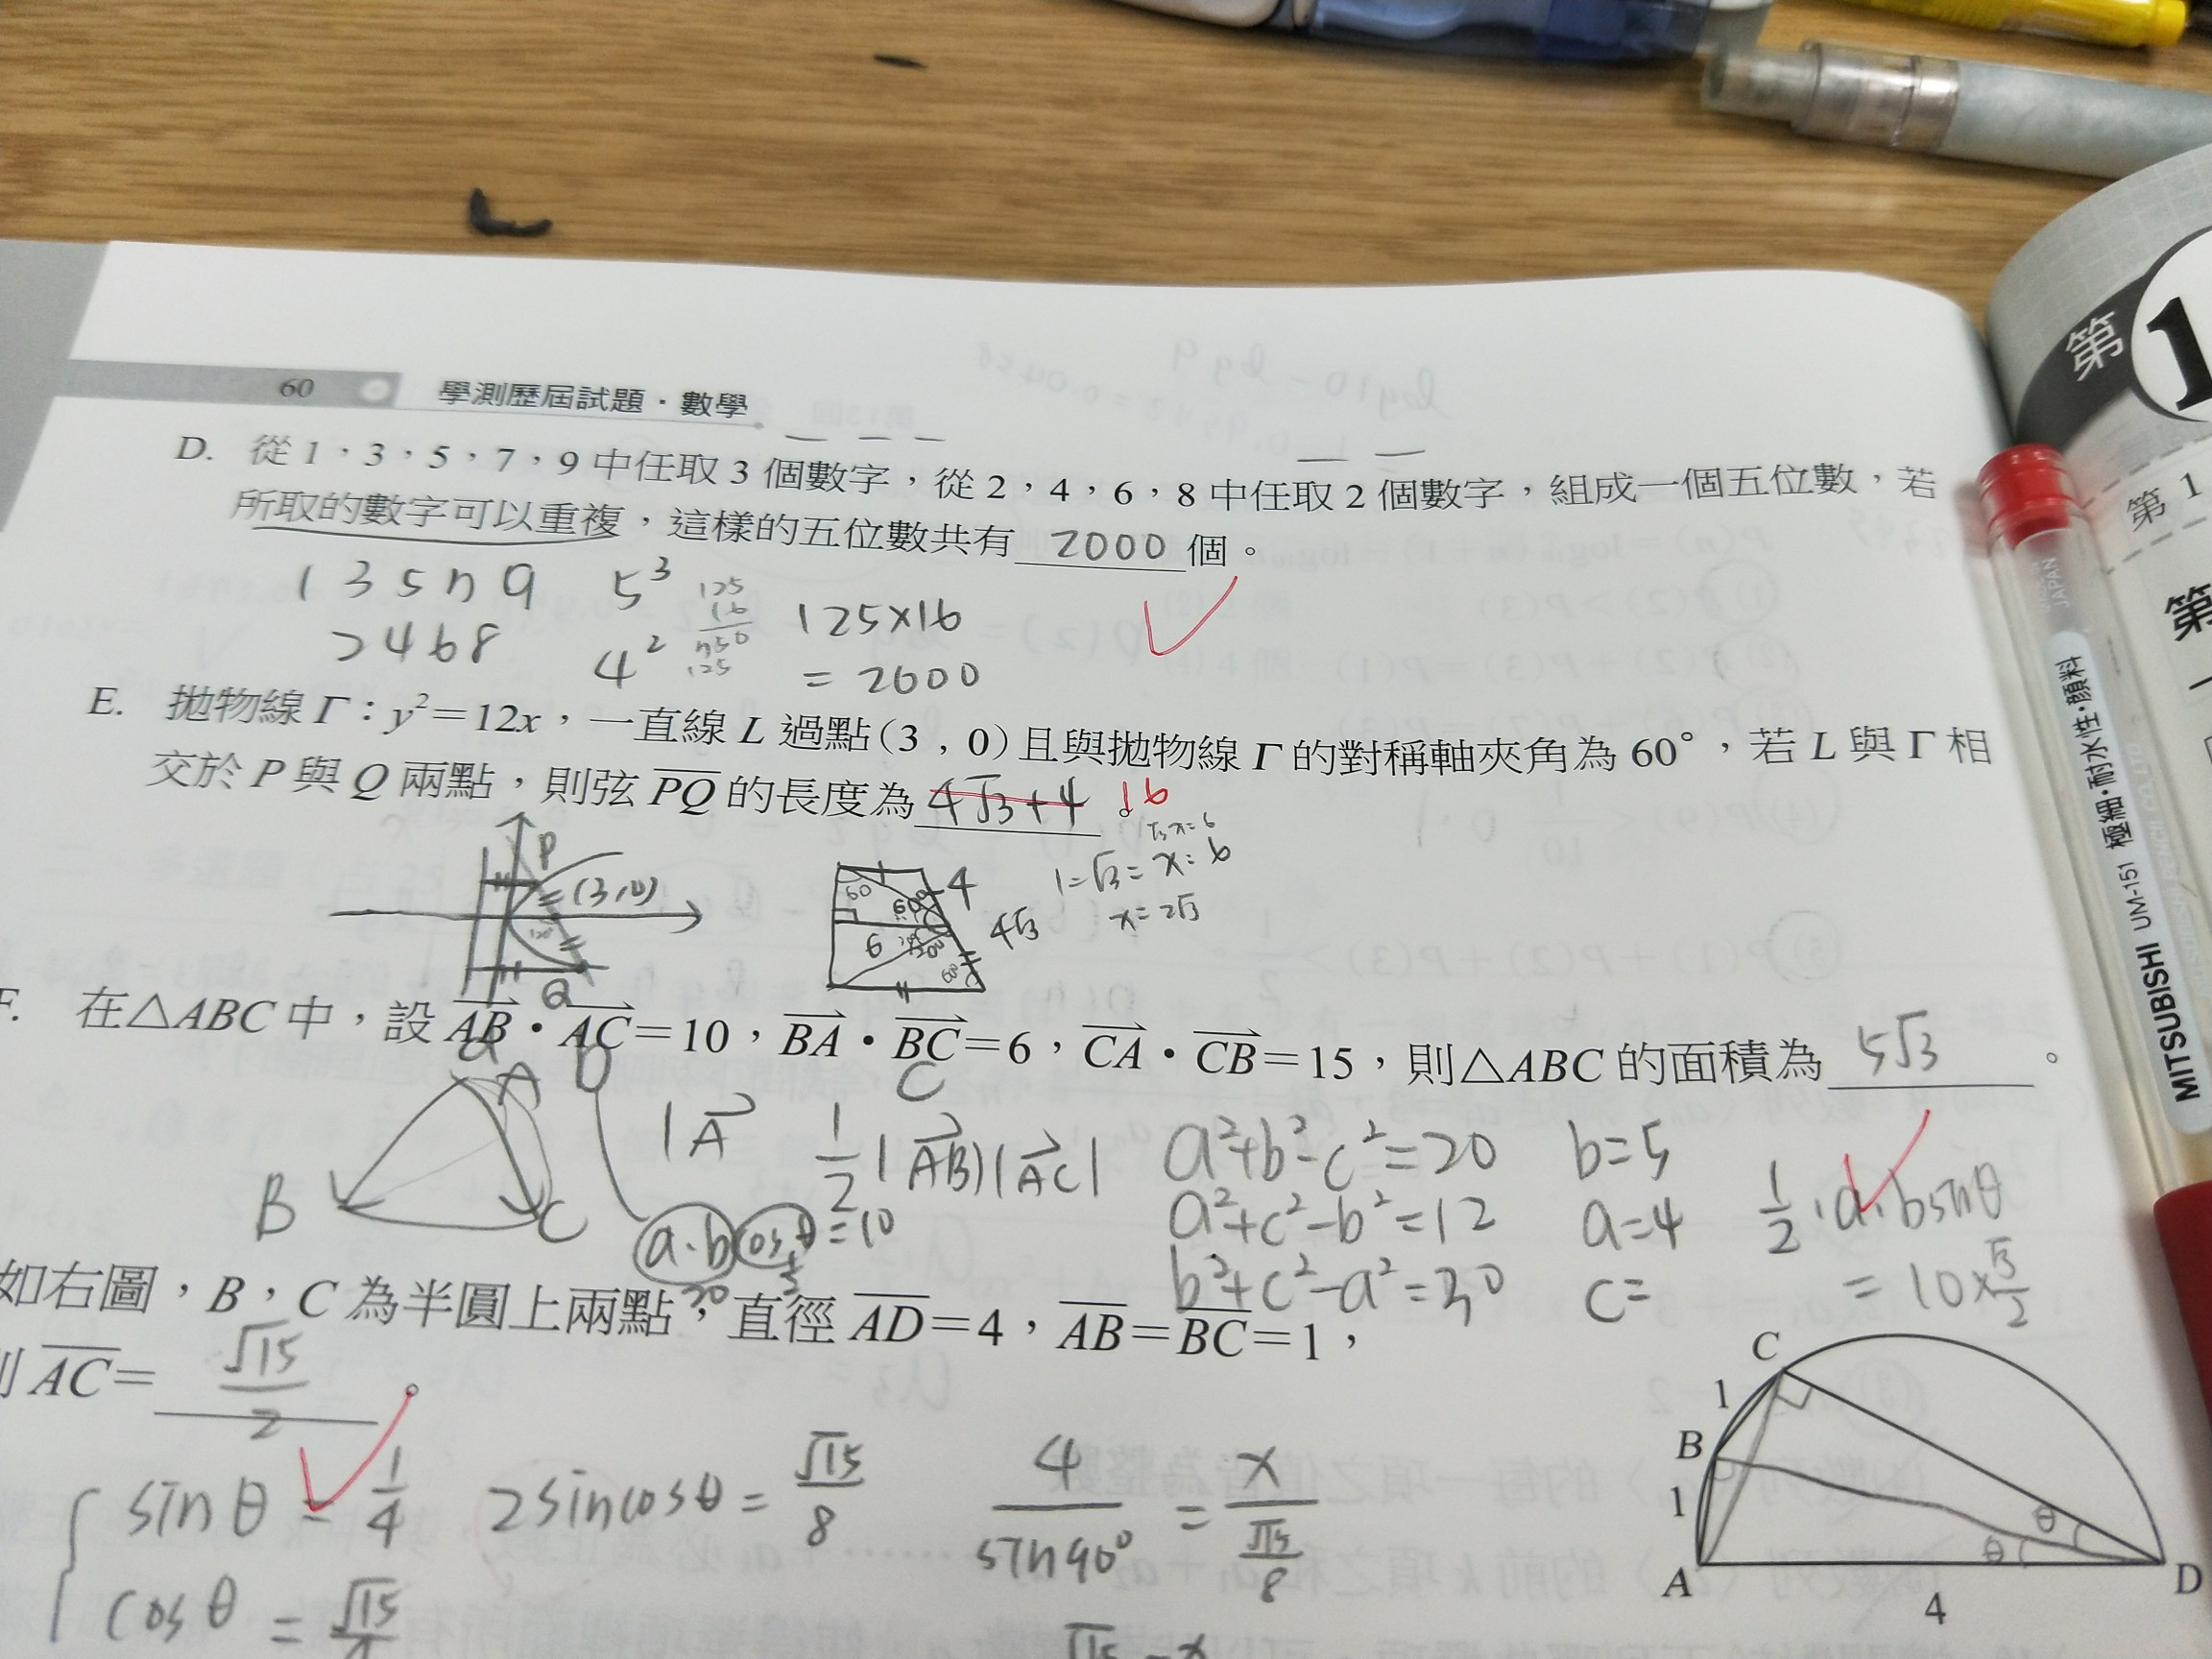 60 學測歷屆試題・數學
D. 從1,3,5,7,9中任取3個數字,從2,4,6,8中任取2個數字,組成一個五位數,若
所取的數字可以重複,這樣的五位數共有 2000 個。
1 3 5 7 9
2 4 6 8
5³
4²
125
16
750
125
125×16
= 2000
E. 拋物線Γ:y²=12x,一直線L過點(3,0)且與拋物線Γ的對稱軸夾角為60°,若L與Γ相
交於P與Q兩點,則弦PQ的長度為 4√3+4 16
P
(3,0)
120°
Q
60
60
4
6
4√3
60
√3x=6
1=√3=x=6
x=2√3
F. 在△ABC中,設AB・AC=10,BA・BC=6,CA・CB=15,則△ABC的面積為 5√3 。
a
b
c
A
B
C
|A
1/2|AB||AC|
a·b cosθ=10
20
a²+b²-c²=20
a²+c²-b²=12
b²+c²-a²=30
b=5
a=4
c=
1/2·a·bsinθ
=10×√3/2
如右圖,B,C為半圓上兩點,直徑AD=4,AB=BC=1,
AC= √15/2 。
sinθ=1/4
cosθ=√15/4
2sincosθ=√15/8
4/sin90°=x/(√15/8)
C
1
B
1
A
θ
θ
D
4
第1
第1
第
一
MITSUBISHI UM-151 極細・耐水性・顏料
JAPAN